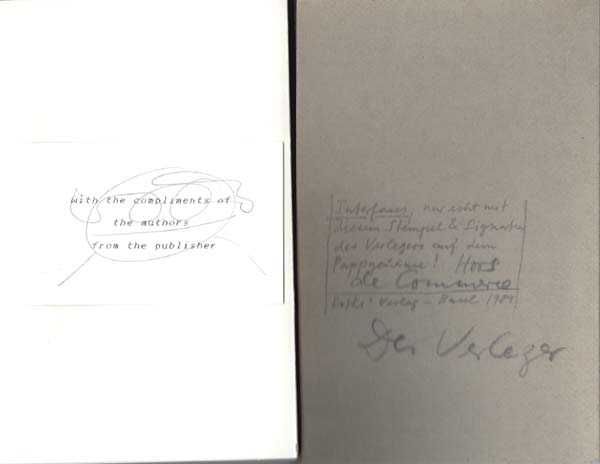 with the compliments of
the authors
from the publisher
Interfaus, nur echt mit
diesem Stempel & Signatur
des Verlegers auf dem
Pappgehäuse! Hors
de Commerce
Verlag – Basel 1989
Der Verleger